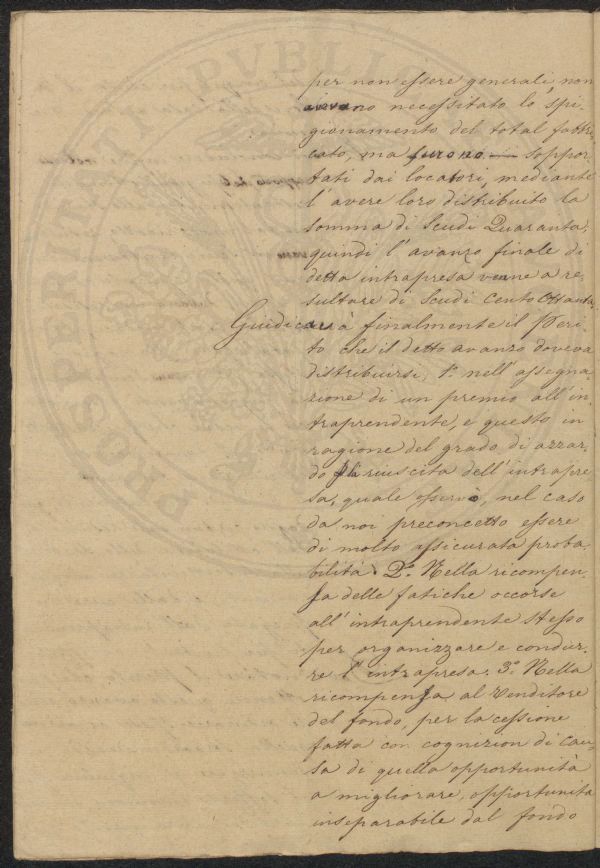 per non essere generali, non
avevano necessitato lo spi-
gionamento del total fabbri-
cato, ma furono soppor-
tati dai locatori, mediante
l'avere loro distribuito la
somma di Scudi Quaranta,
quindi l'avanzo finale di
detta intrapresa venne a re-
sultare di Scudi Cento Ottanta.
Giudicherà finalmente il Peri-
to che il detto avanzo doveva
distribuirsi, 1.° nell'assegna-
zione di un premio all'in-
traprendente, e questo in
ragione del grado di azzar-
do di riuscita dell'intrapre-
sa, quale osservò, nel caso
da noi preconcetto essere
di molto assicurata proba-
bilità. 2.° Nella ricompen-
sa delle fatiche occorse
all'intraprendente stesso
per organizzare e condur-
re l'intrapresa. 3.° Nella
ricompensa al Venditore
del fondo, per la cessione
fatta con cognizion di cau-
sa di quella opportunità
a migliorare, opportunità
inseparabile dal fondo